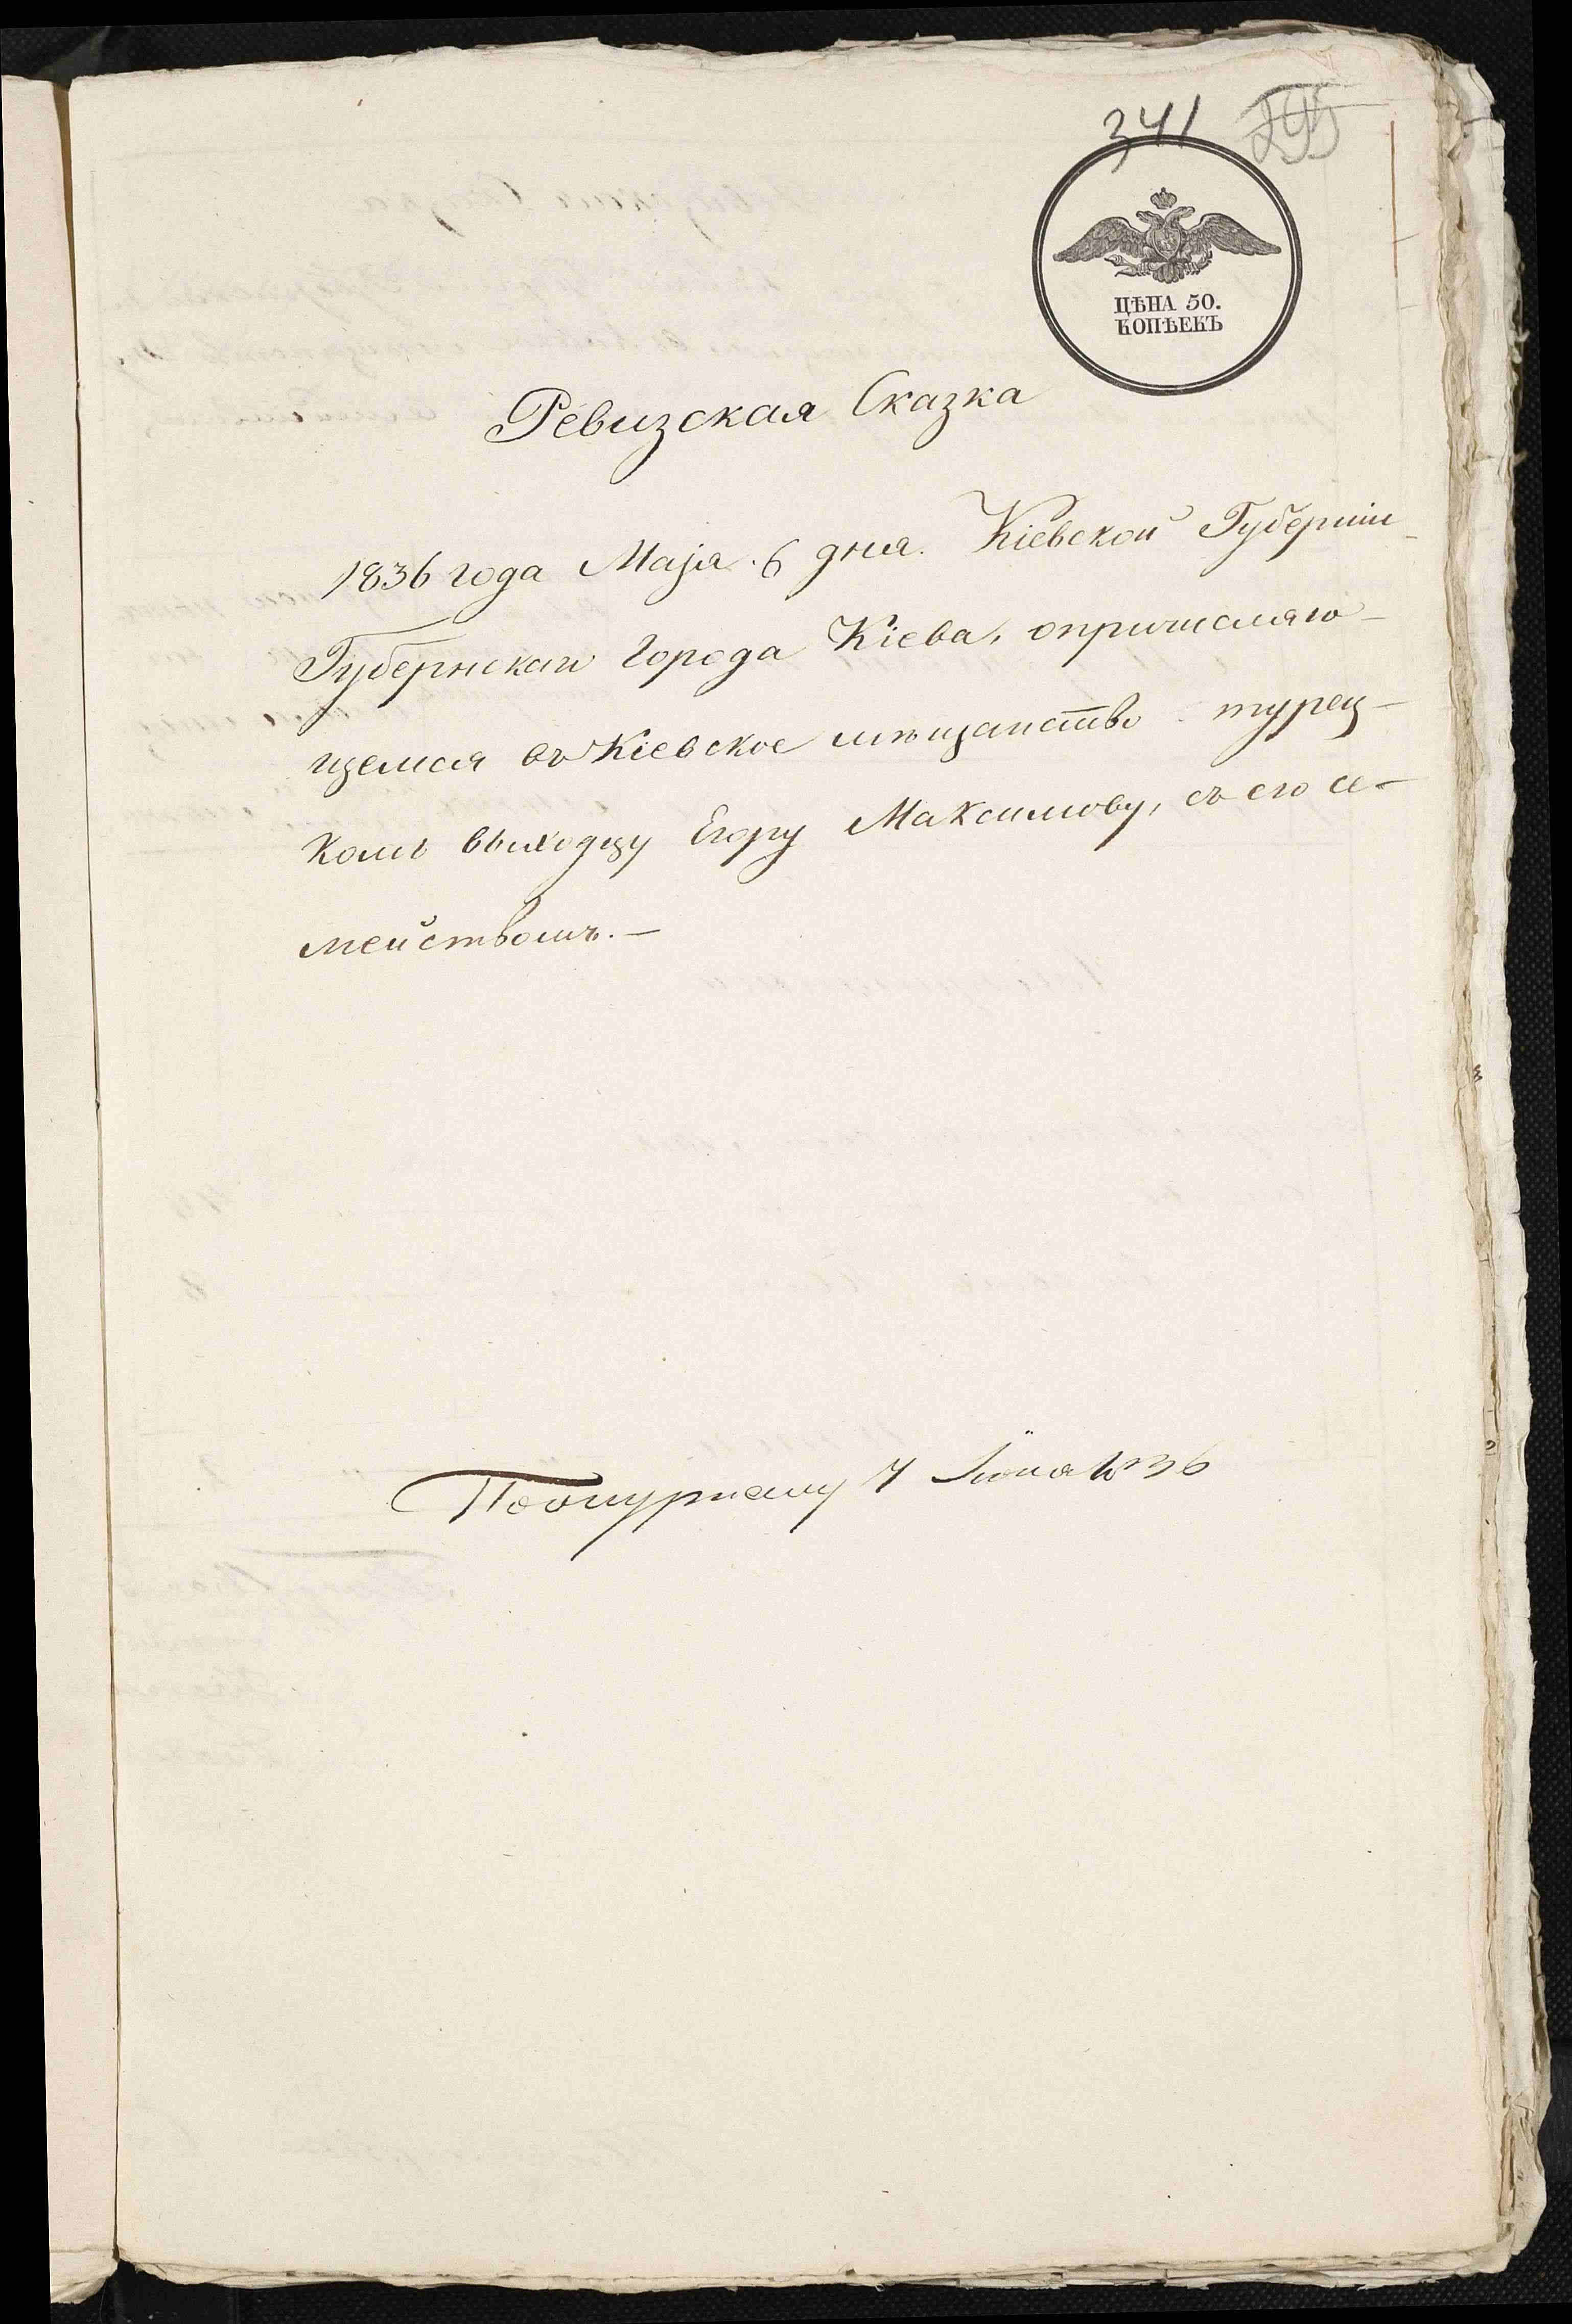 341 295
ЦѢНА 50.
КОПѢЕКЪ
Ревизская Сказка
1836 года Маія 6 дня. Кіевской Губерніи
Губернскаго Города Кіева, опричисляю-
щемся въ Кіевское мѣщанство турец-
комъ выходцу Егору Максимову, съ его се-
мействомъ. —
По журналу 7 Іюня 1836